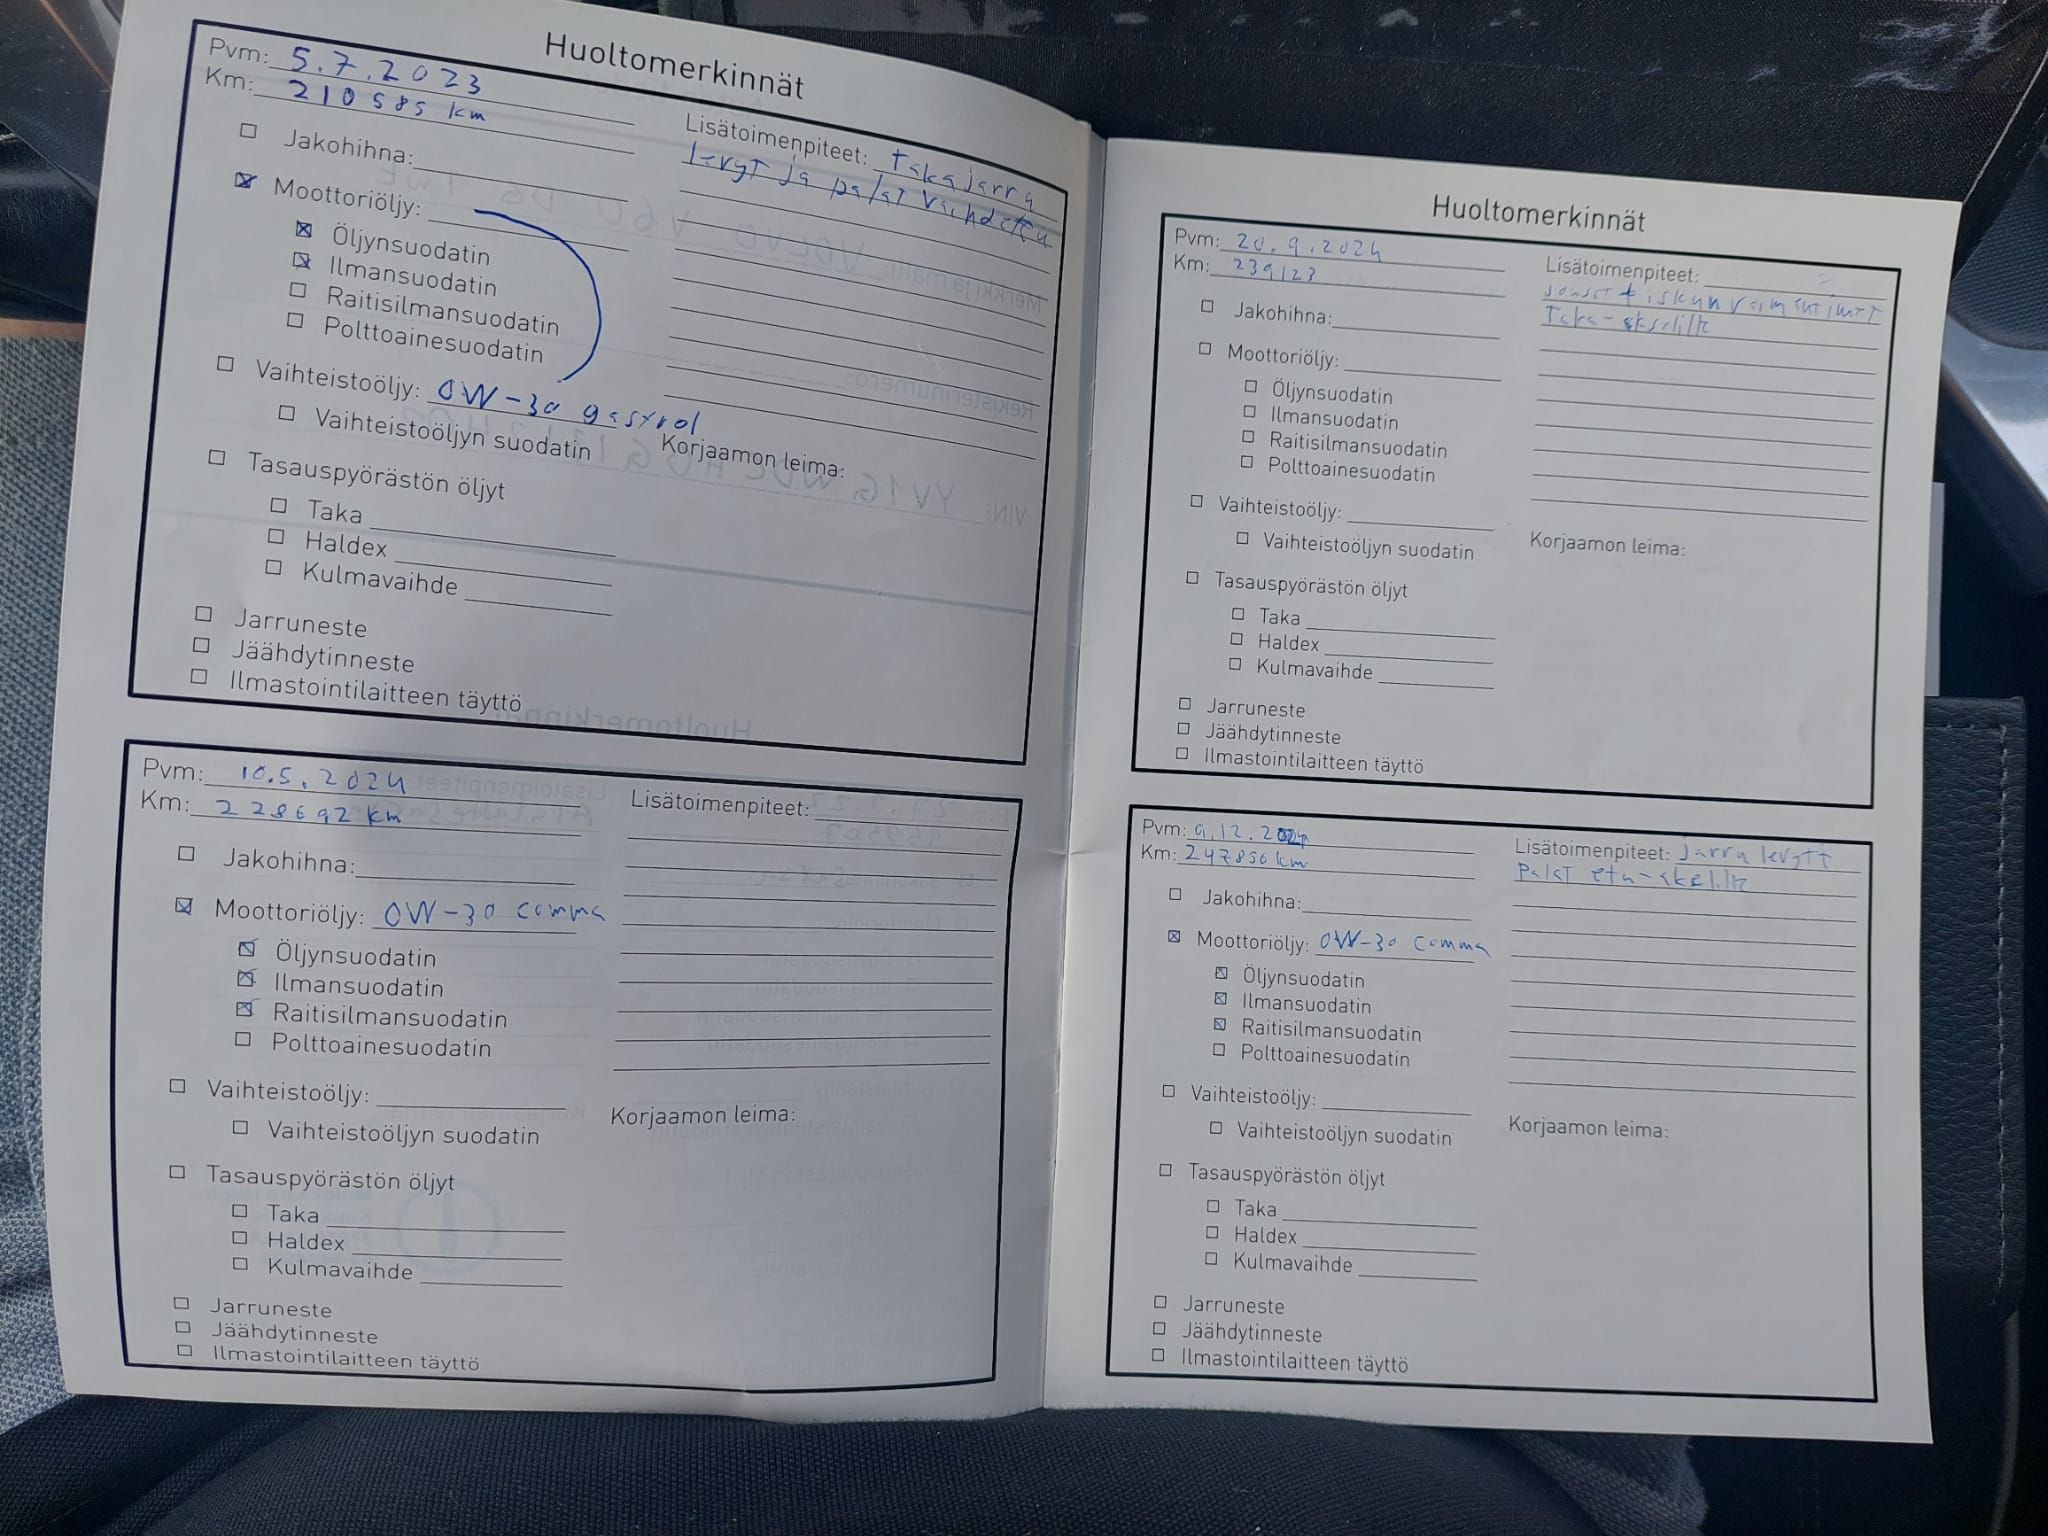 Huoltomerkinnät
Pvm: 5.7.2023
Km: 210585 km
Jakohihna:
Moottoriöljy:
Öljynsuodatin
Ilmansuodatin
Raitisilmansuodatin
Polttoainesuodatin
Vaihteistoöljy: 0W-30 gastrol
Vaihteistoöljyn suodatin
Tasauspyörästön öljyt
Taka
Haldex
Kulmavaihde
Jarruneste
Jäähdytinneste
Ilmastointilaitteen täyttö
Lisätoimenpiteet: takajarru
levyt ja palat vaihdettu
Korjaamon leima:
Pvm: 10.5.2024
Km: 228692 km
Jakohihna:
Moottoriöljy: 0W-30 comma
Öljynsuodatin
Ilmansuodatin
Raitisilmansuodatin
Polttoainesuodatin
Vaihteistoöljy:
Vaihteistoöljyn suodatin
Tasauspyörästön öljyt
Taka
Haldex
Kulmavaihde
Jarruneste
Jäähdytinneste
Ilmastointilaitteen täyttö
Lisätoimenpiteet:
Korjaamon leima:
Huoltomerkinnät
Pvm: 20.9.2024
Km: 239123
Jakohihna:
Moottoriöljy:
Öljynsuodatin
Ilmansuodatin
Raitisilmansuodatin
Polttoainesuodatin
Vaihteistoöljy:
Vaihteistoöljyn suodatin
Tasauspyörästön öljyt
Taka
Haldex
Kulmavaihde
Jarruneste
Jäähdytinneste
Ilmastointilaitteen täyttö
Lisätoimenpiteet:
jouset + iskunvaimentimet
Taka-akselille
Korjaamon leima:
Pvm: 9.12.2024
Km: 247850 km
Jakohihna:
Moottoriöljy: 0W-30 comma
Öljynsuodatin
Ilmansuodatin
Raitisilmansuodatin
Polttoainesuodatin
Vaihteistoöljy:
Vaihteistoöljyn suodatin
Tasauspyörästön öljyt
Taka
Haldex
Kulmavaihde
Jarruneste
Jäähdytinneste
Ilmastointilaitteen täyttö
Lisätoimenpiteet: Jarru levyt +
palat etu-akselille
Korjaamon leima: